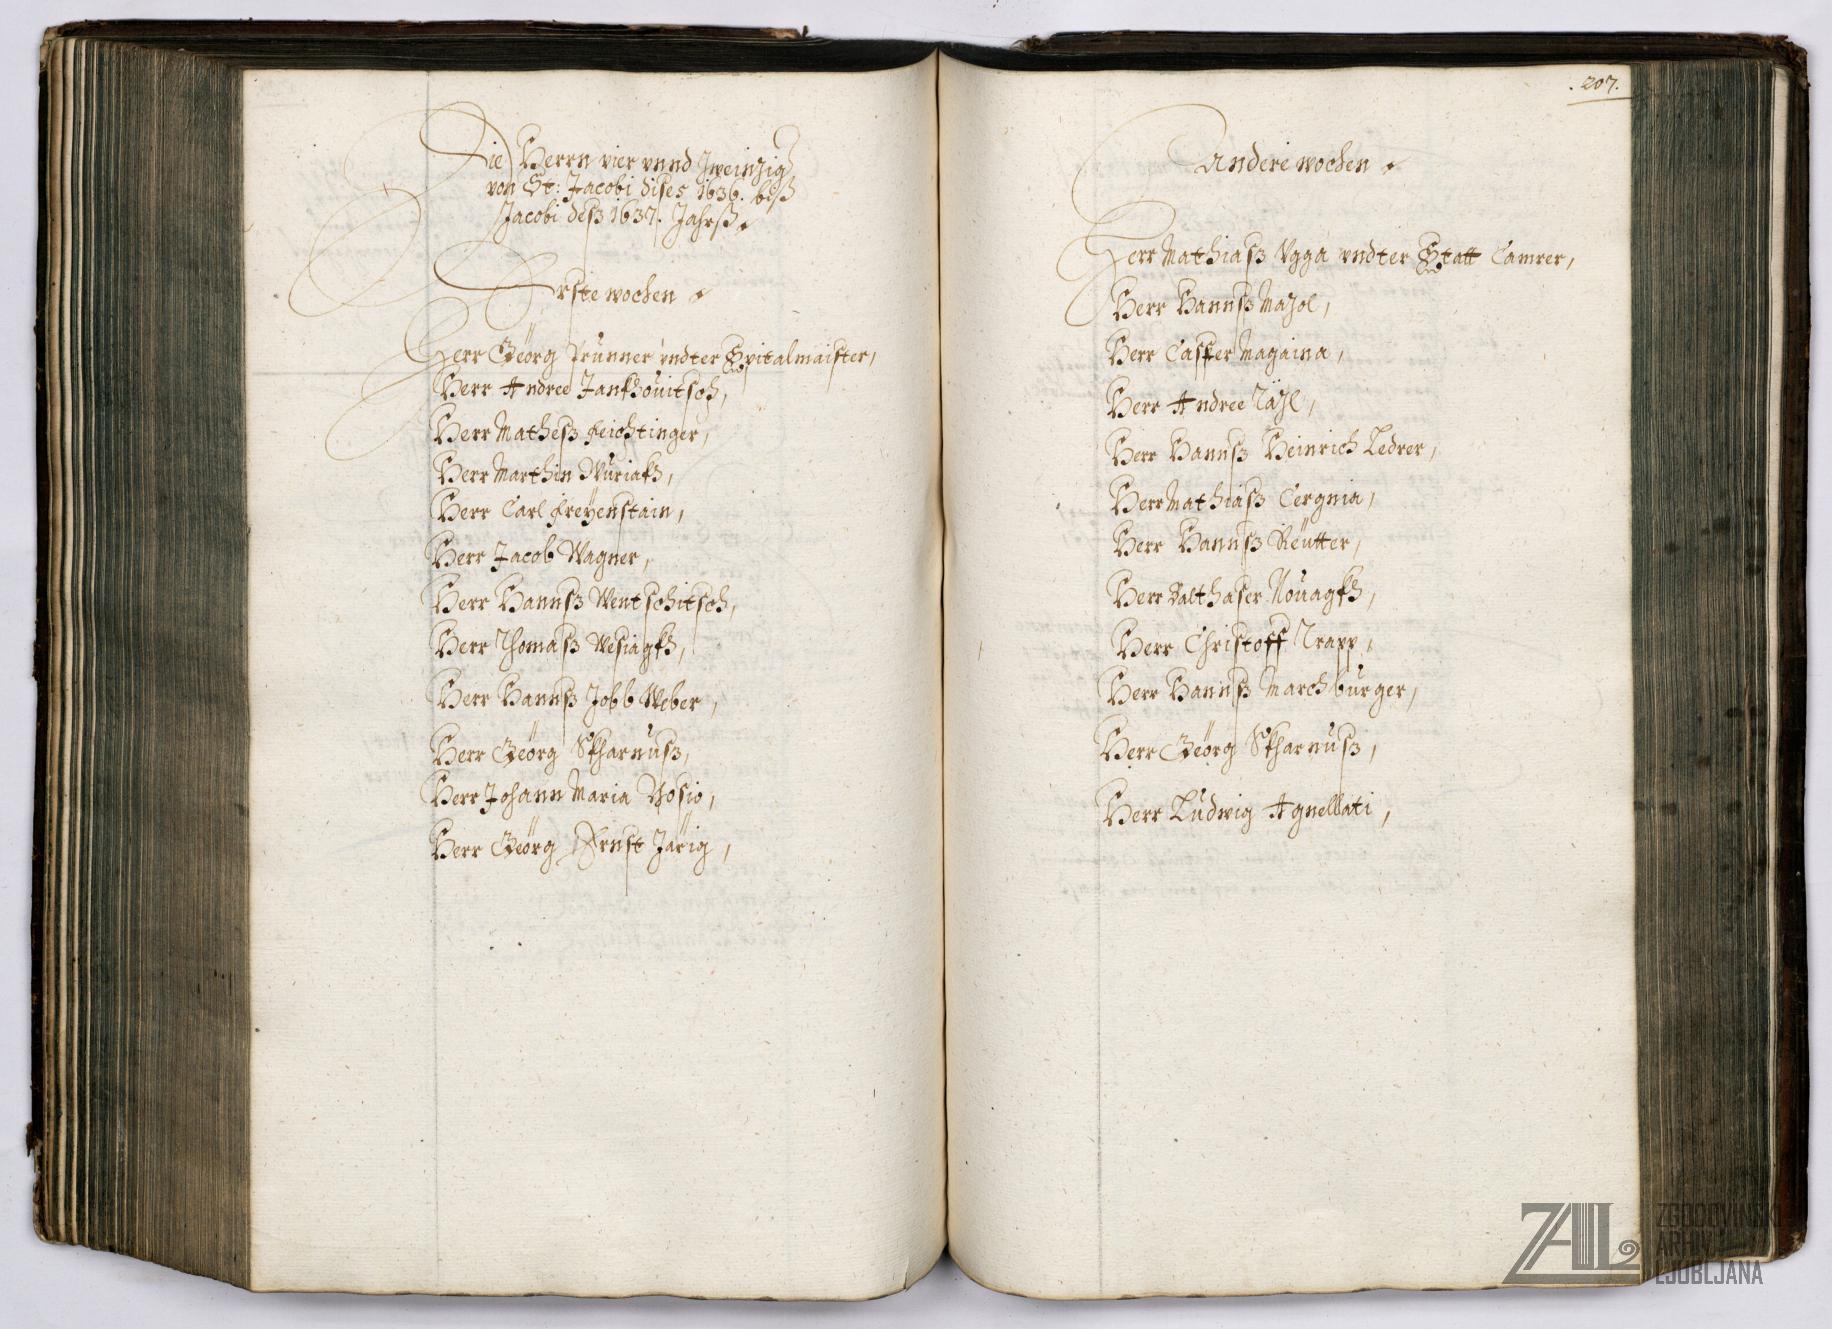 Die Herrn vier vnnd Zweinzig
von St: Jacobi dises 1636. biß
Jacobi deß 1637. Jahrß.
Erste wochen
Herr Geörg Prunner vndter Spitalmaister,
Herr Andree Jankhouitsch,
Herr Matheß Feichtinger,
Herr Marthin Wuriakh,
Herr Carl Freÿenstain,
Herr Jacob Wagner,
Herr Hannß Wentschitsch,
Herr Thomaß Wesiagkh,
Herr Hannß Jobb Weber,
Herr Geörg Skharnuß,
Herr Johann Maria Bosio,
Herr Geörg Ernst Järig,
.207.
Andere wochen
Herr Mathiaß Vgga vndter Statt Camrer,
Herr Hannß Maÿol,
Herr Casper Magaina,
Herr Andree
Herr Hannß Heinrich Ledrer,
Herr Mathiaß Cergnia,
Herr Hannß Reütter,
Herr Balthaser Nouagkh,
Herr Christoff Trapp,
Herr Hannß Marchburger,
Herr Geörg Skharnuß,
Herr Ludwig Agnellati,
ZAL
ZGODOVINSKI
ARHIV
LJUBLJANA